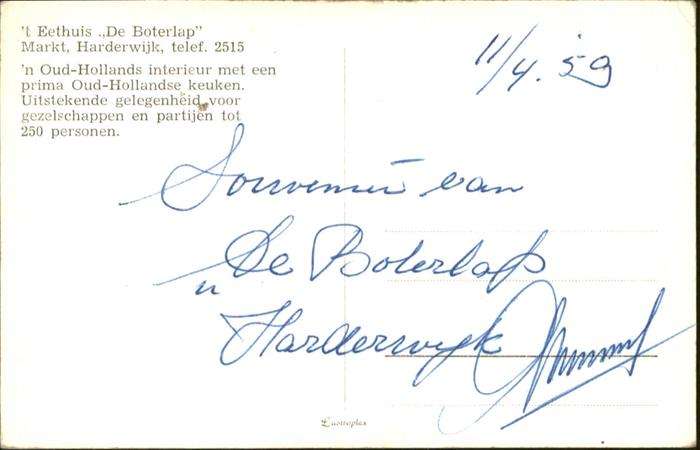 't Eethuis „De Boterlap”
Markt, Harderwijk, telef. 2515
'n Oud-Hollands interieur met een
prima Oud-Hollandse keuken.
Uitstekende gelegenheid voor
gezelschappen en partijen tot
250 personen.
11/4. 59
Souvenir van
De Boterlap
Harderwyk